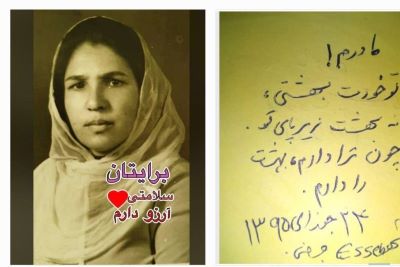 برایتان
سلامتی
آرزو دارم
مادرم!
تو خودت بهشتی،
نه بهشت زیر پای تو.
چون ترا دارم، بهشت
را دارم.
۲۴ جوزای ۱۳۹۵